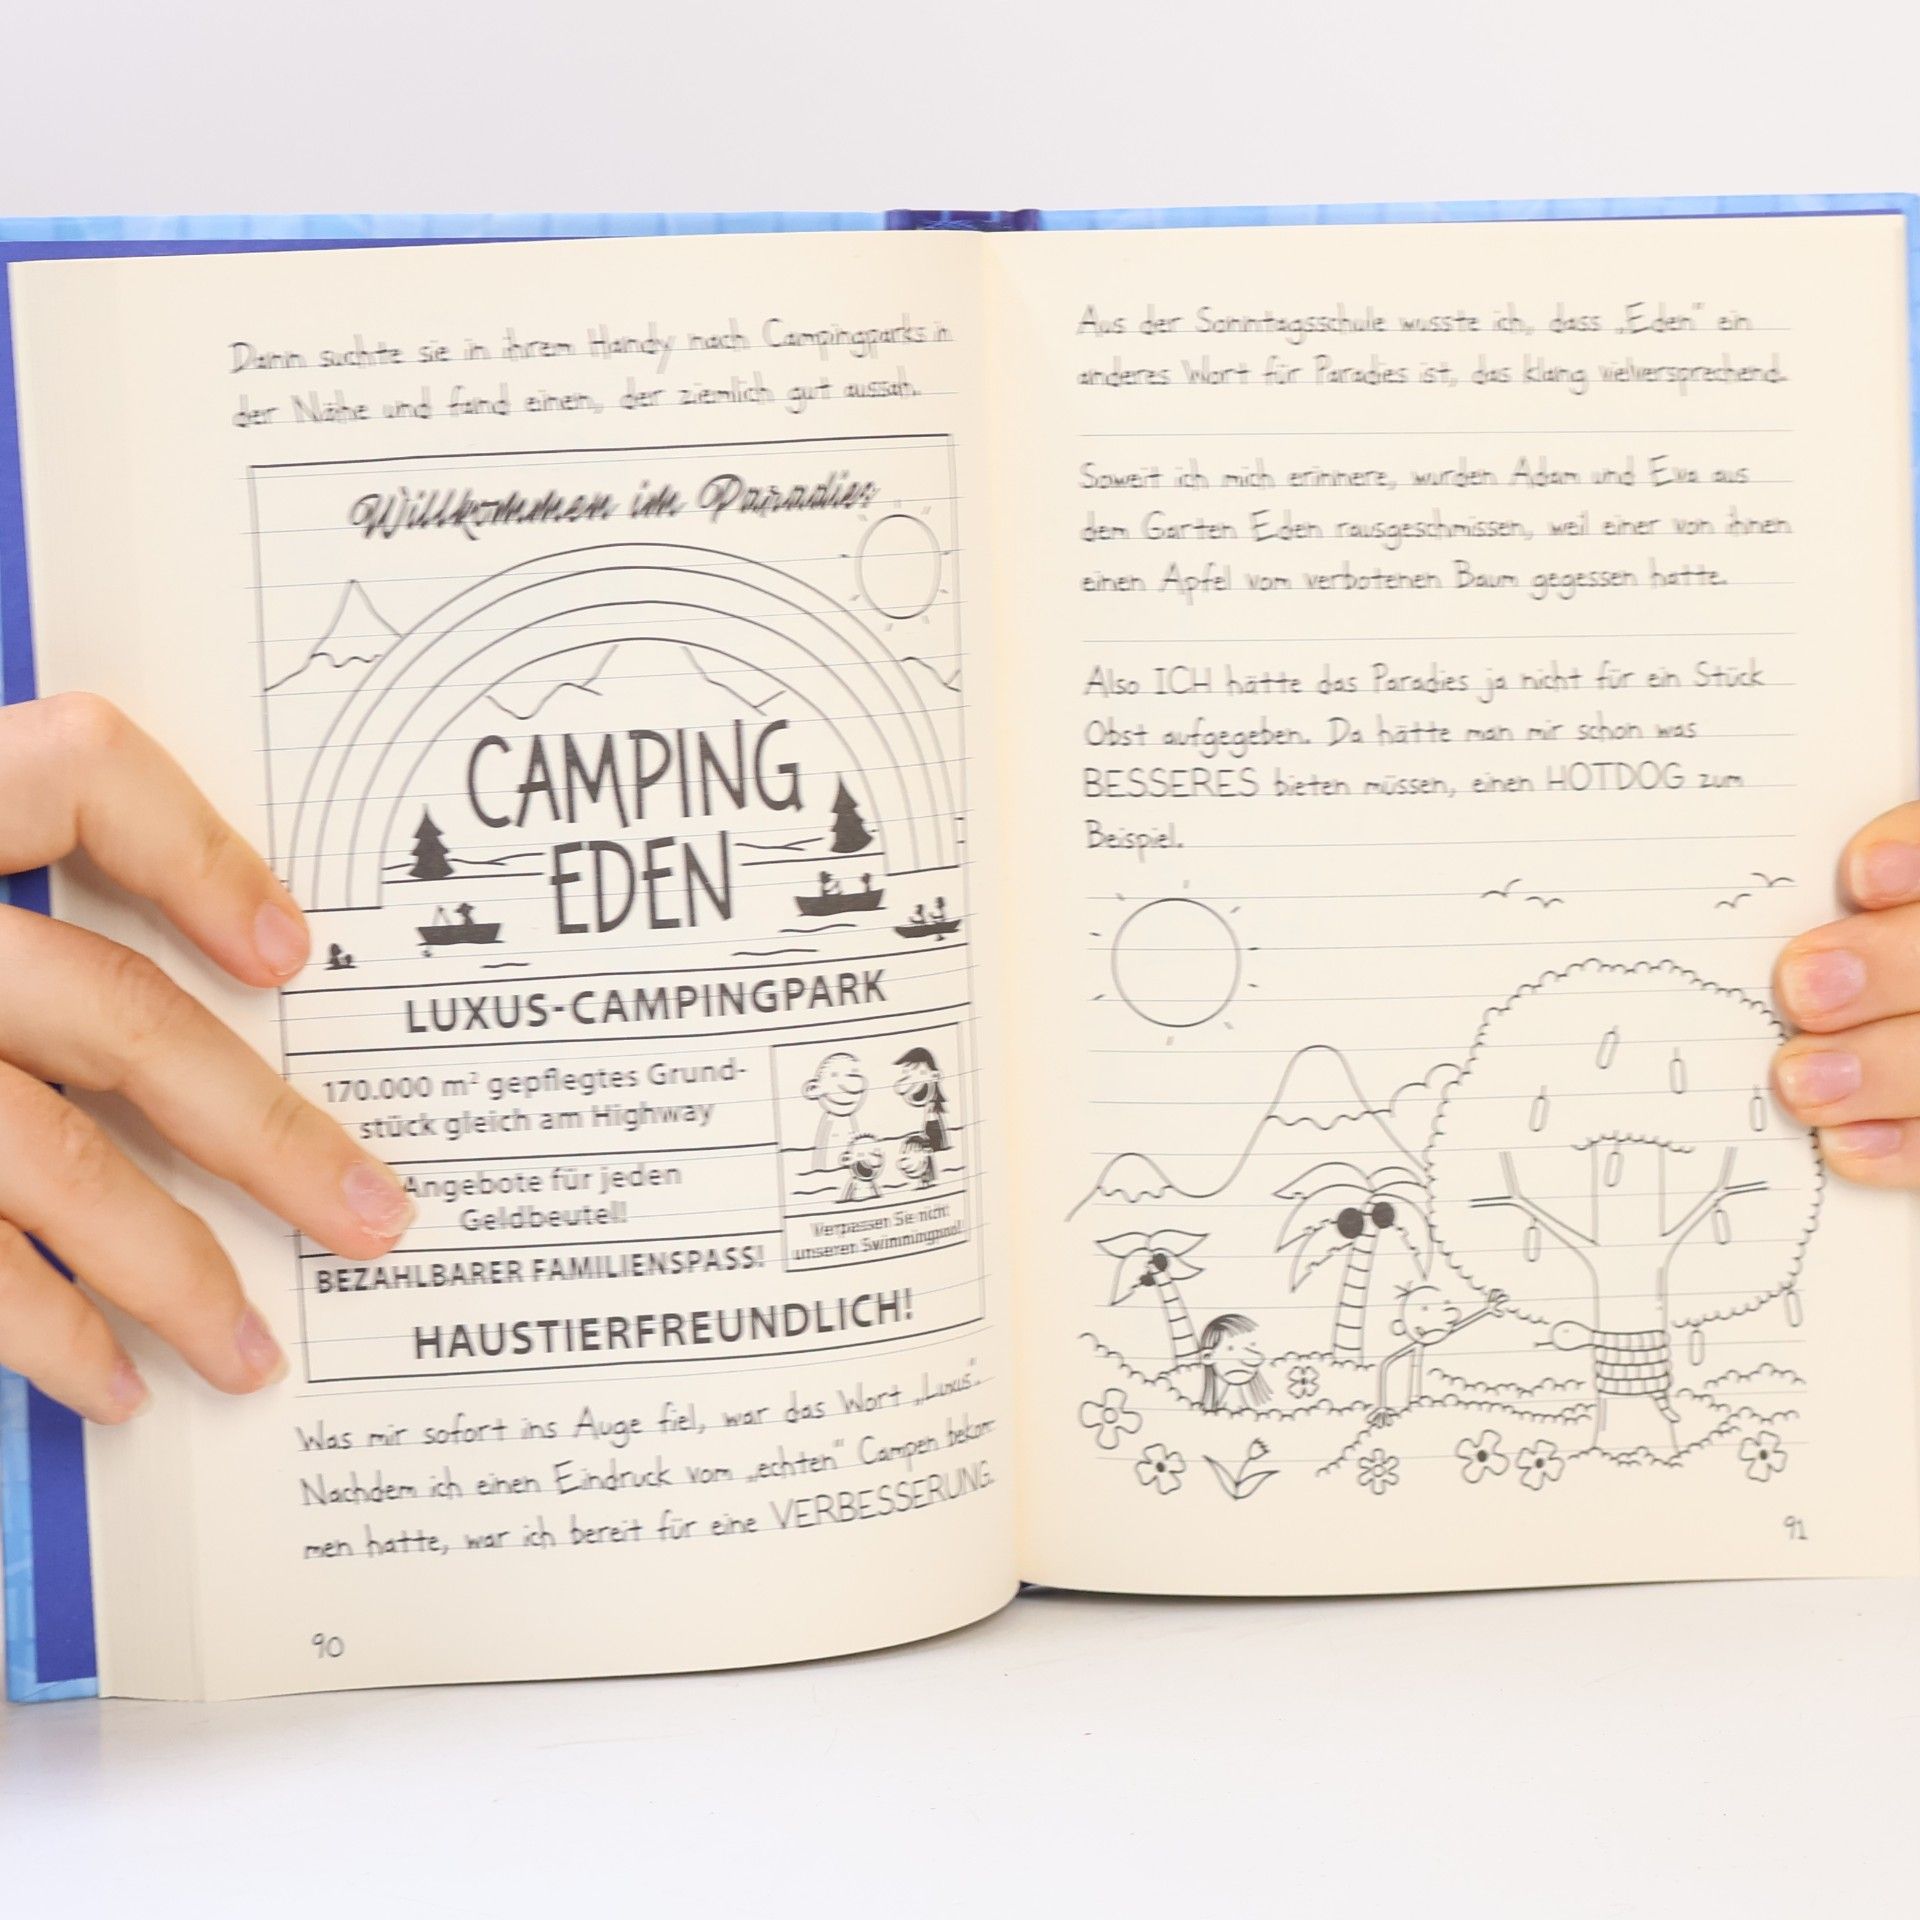 Dann suchte sie in ihrem Handy nach Campingparks in
der Nähe und fand einen, der ziemlich gut aussah.
Willkommen im Paradies
CAMPING
EDEN
LUXUS-CAMPINGPARK
170.000 m² gepflegtes Grund-
stück gleich am Highway
Angebote für jeden
Geldbeutel!
Verpassen Sie nicht
unseren Swimmingpool!
BEZAHLBARER FAMILIENSPASS!
HAUSTIERFREUNDLICH!
Was mir sofort ins Auge fiel, war das Wort „Luxus“.
Nachdem ich einen Eindruck vom „echten“ Campen bekom-
men hatte, war ich bereit für eine VERBESSERUNG.
90
Aus der Sonntagsschule wusste ich, dass „Eden“ ein
anderes Wort für Paradies ist, das klang vielversprechend.
Soweit ich mich erinnere, wurden Adam und Eva aus
dem Garten Eden rausgeschmissen, weil einer von ihnen
einen Apfel vom verbotenen Baum gegessen hatte.
Also ICH hätte das Paradies ja nicht für ein Stück
Obst aufgegeben. Da hätte man mir schon was
BESSERES bieten müssen, einen HOTDOG zum
Beispiel.
91